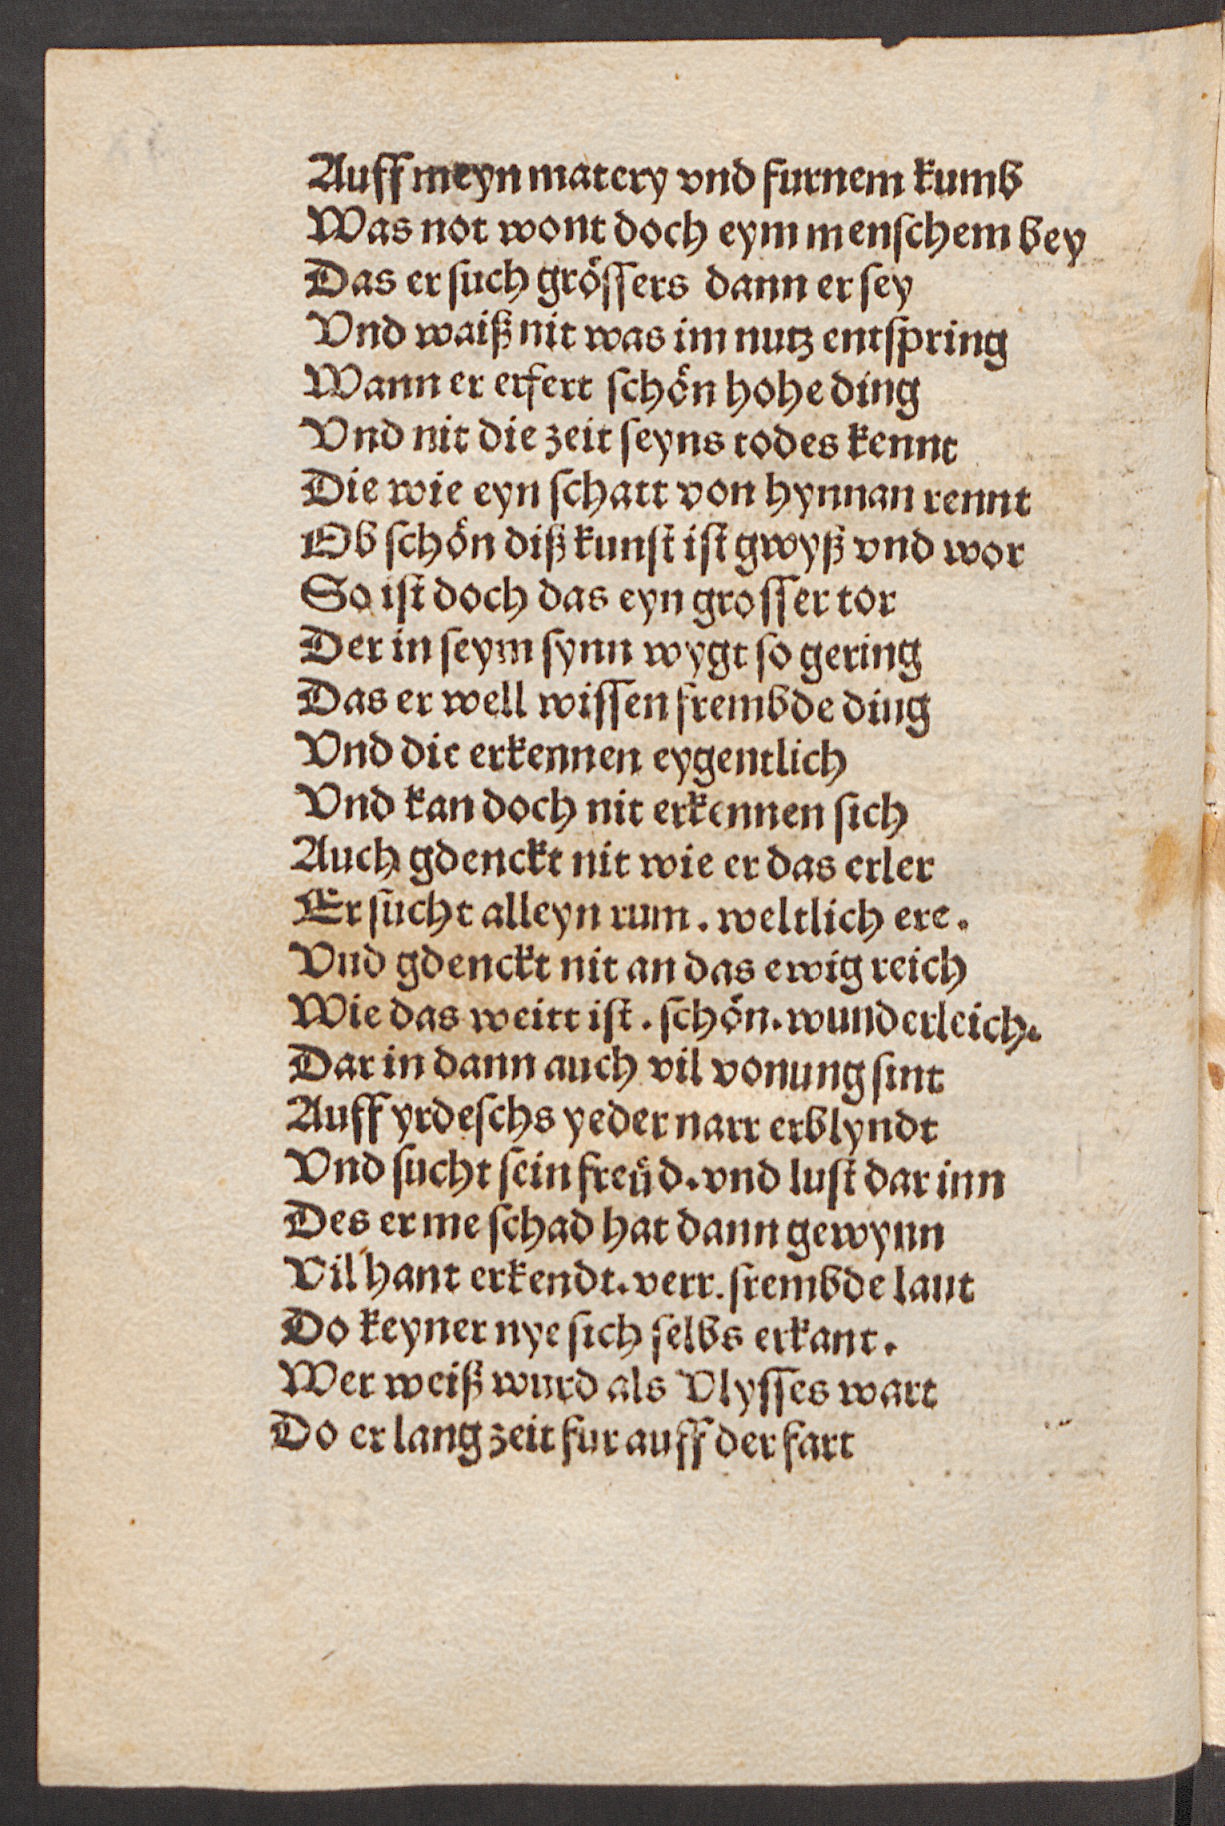 Auff meyn matery vnd furnem kumb
Was not wont doch eym menschem bey
Das er such grössers dann er sey
Vnd waiß nit was im nutz entspring
Wann er erfert schön hohe ding
Vnd nit die zeit seyns todes kennt
Die wie eyn schatt von hynnan rennt
Ob schön diß kunst ist gwyß vnd wor
So ist doch das eyn grosser tor
Der in seym synn wygt so gering
Das er well wissen frembde ding
Vnd dic erkennen eygentlich
Vnd kan doch nit erkennen sich
Auch gdenckt nit wie er das erler
Er sucht alleyn rum. weltlich ere.
Vnd gdenckt nit an das ewig reich
Wie das weitt ist. schön. wunderleich.
Dar in dann auch vil vonung sint
Auff yrdeschs yeder narr erblyndt
Vnd sucht sein freüd. vnd lust dar inn
Des er me schad hat dann gewynn
Vil hant erkendt. verr. frembde laut
Do keyner nye sich selbs erkant.
Wer weiß wurd als Vlysses wart
Do er lang zeit fur auff der fart